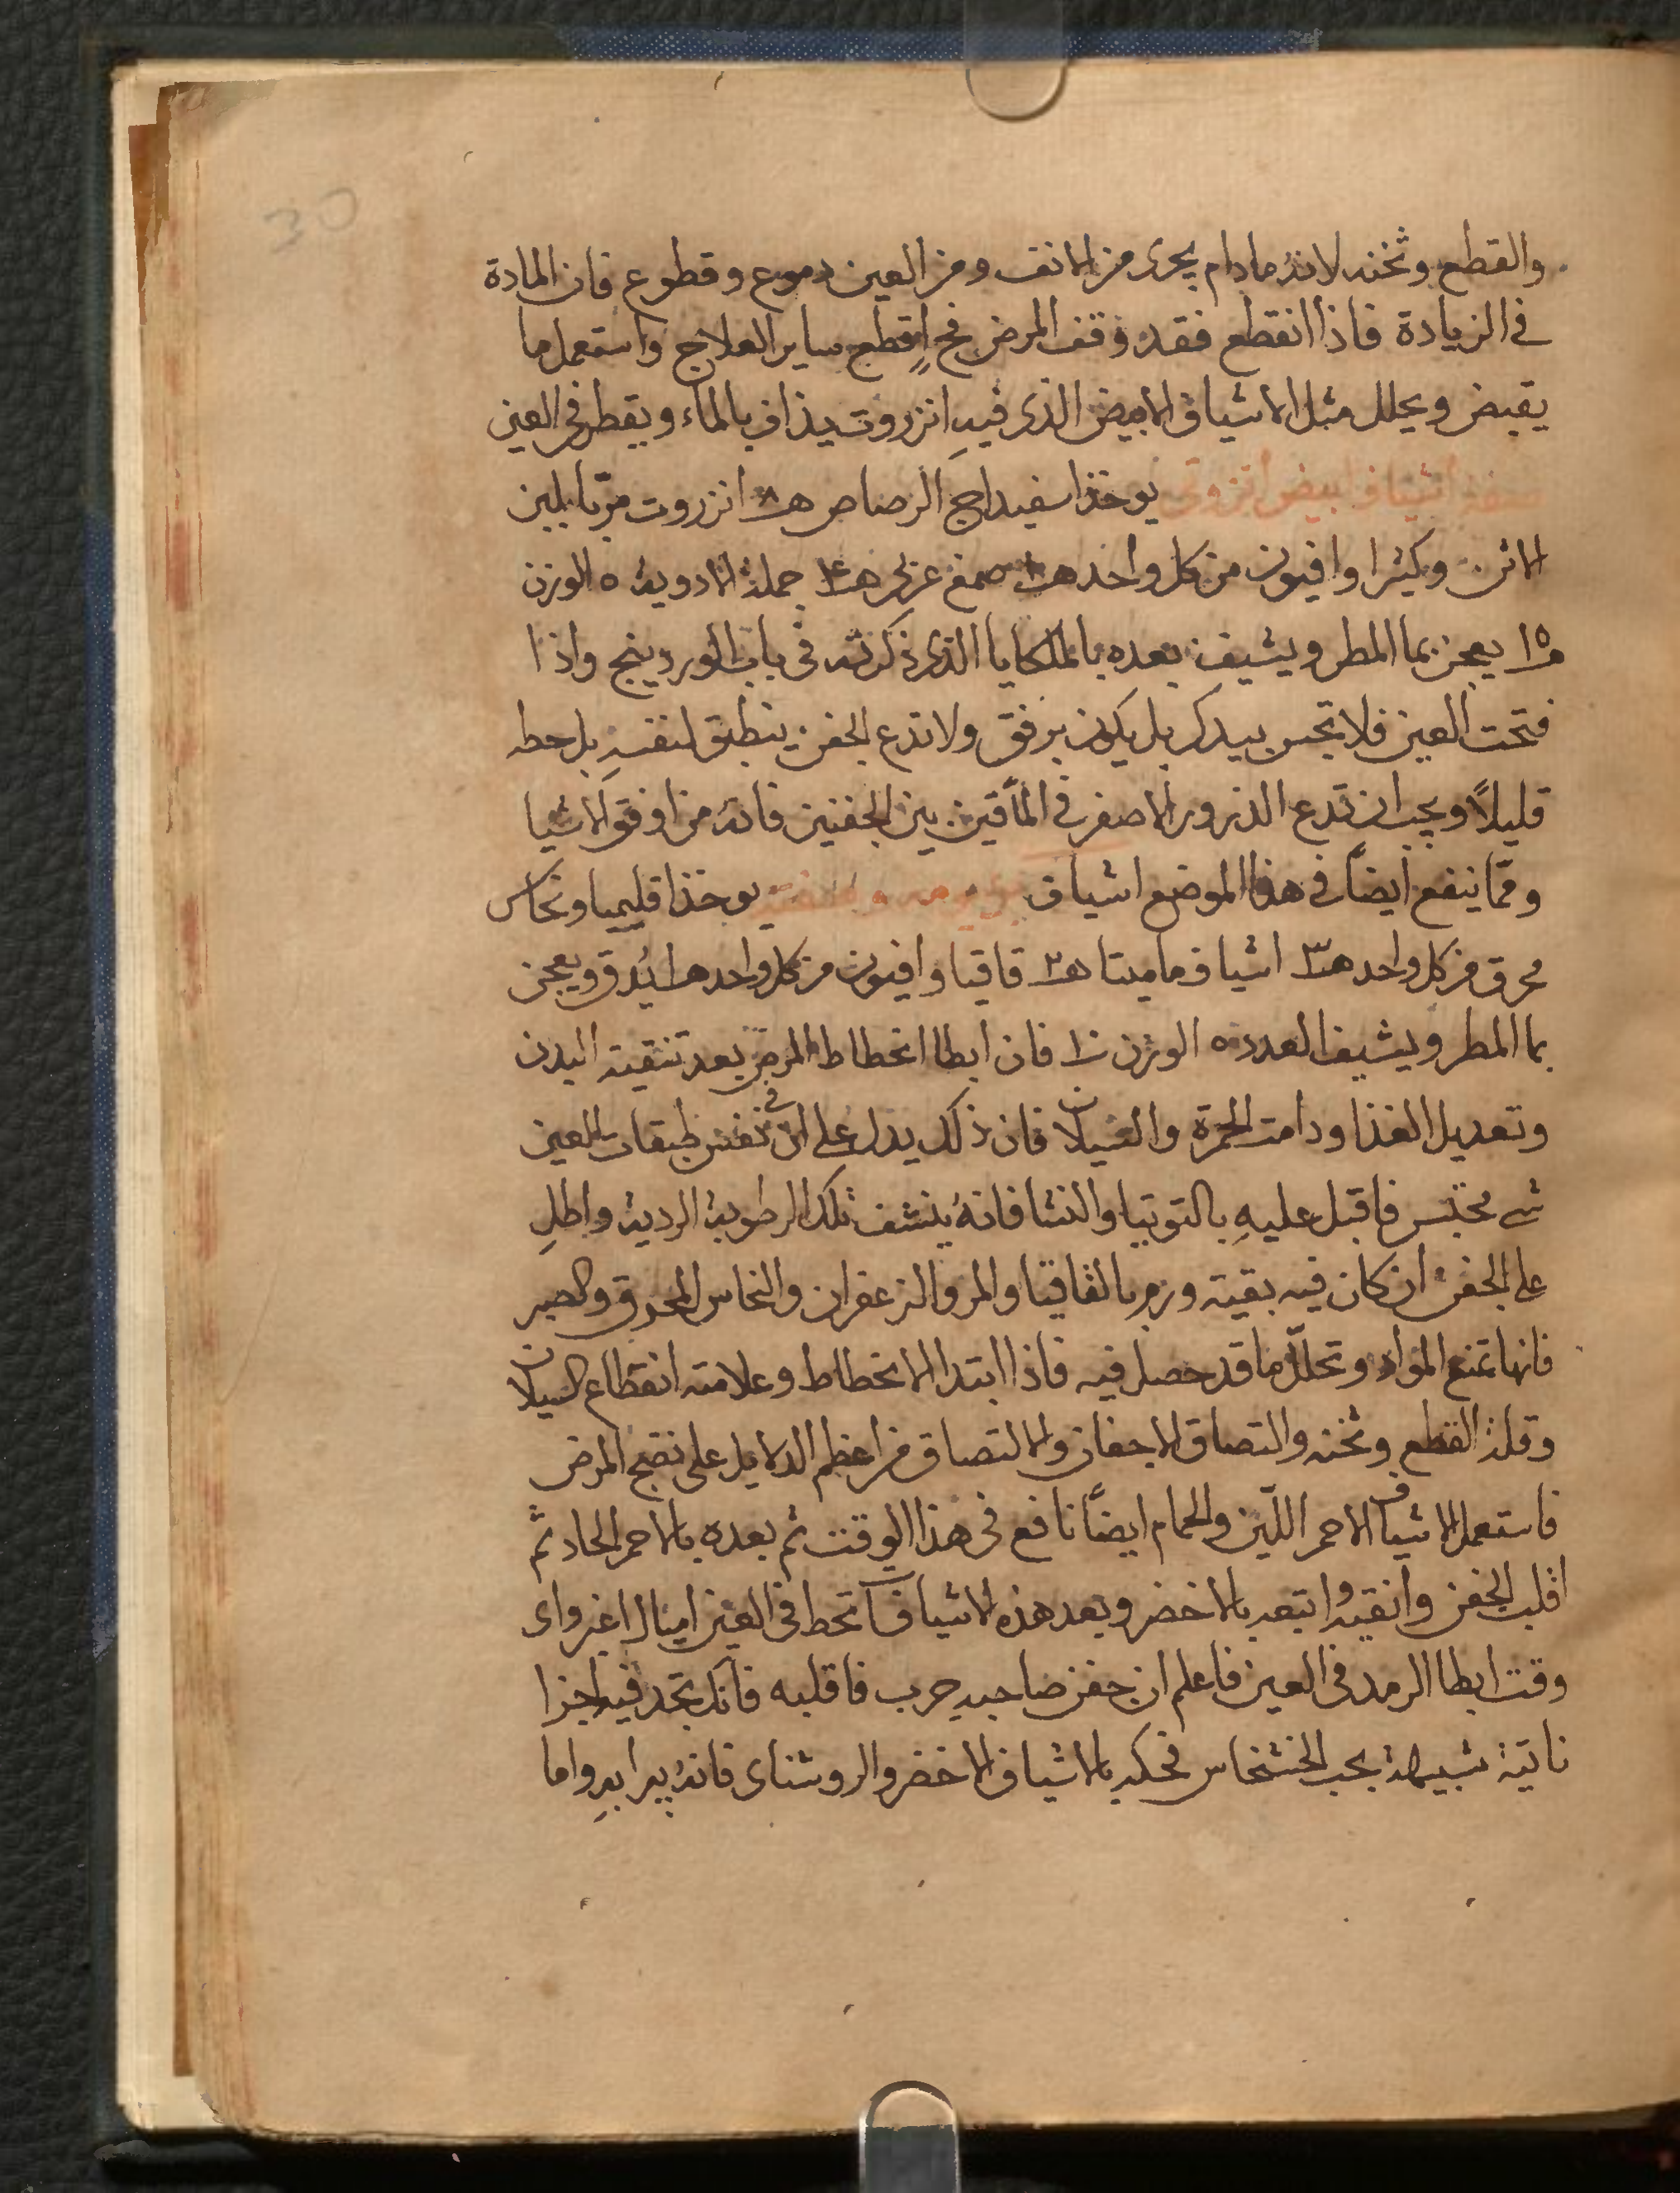 30
والقطع وثخنه لانه مادام يجرى من الانف ومن العين دموع وقطوع فان المادة
فى الزيادة فاذا انقطع فقد وقف المرض فح اقطع ساير العلاج واستعمل ما
يقبض ويحلل مثل الاشياف الابيض الذى فيه انزروت يذاف بالماء ويقطر فى العين
اشياف ابيض انزروتى يوخذ اسفيداج الرصاص هـ ٨ انزروت مربا بلبن
الاتن وكثيرا وافيون من كل واحد صمغ عربى جملة الادوية ٥ الوزن
١٥ يعجن بما المطر ويشيف بعده بالملكايا الذى ذكرته فى باب الوردينج واذا
فتحت العين فلا تحس بيدك بل يكون برفق ولا تدع الجفن ينطبق لنفسه بل حطه
قليلاً ويجب ان تدع الذرور الاصفر فى المآقين بين الجفنين فانه من اوفق الاشيا
ومما ينفع ايضاً فى هذا الموضع اشياف يوخذ اقليميا ونحاس
محرق من كل واحد هـ ٣ اشياف ماميتا هـ ٢ قاقيا وافيون من كل واحد هـ ا يُدق ويعجن
بما المطر ويشيف العدد ٥ الوزن ١٠ فان ابطا انحطاط المرض بعد تنقية البدن
وتعديل الغذا ودامت الحمرة والسيلان فان ذلك يدل على ان فى نفس طبقات العين
شى محتبس فاقبل عليهِ بالتوتيا والنشا فانهُ ينشف تلك الرطوبة الردية واطلِ
على الجفن ان كان فيه بقية ورم بالقاقيا والمر والزعفران والنحاس المحرق والصبر
فانها تمنع المواد وتحلّل ما قد حصل فيه فاذا ابتدا الانحطاط وعلامته انقطاع السيلان
وقلة القطع وثخنه والتصاق الاجفان والالتصاق من اعظم الدلايل على نضج المرض
فاستعمل الاشياف الاحمر اللّين والحمام ايضاً نافع فى هذا الوقت ثم بعده بالاحمر الحاد ثم
اقلب الجفن وانقيه واتبعه بالاخضر وبعد هذه الاشيافات تحط فى العين اميال اغبر واى
وقت ابطا الرمد فى العين فاعلم ان جفن صاحبه جرب فاقلبه فانك تجد فيه اجزا
ناتية شبيهة بحب الخشخاش فحكه بالاشياف الاخضر والروشناى فانه يبرا بهِ واما